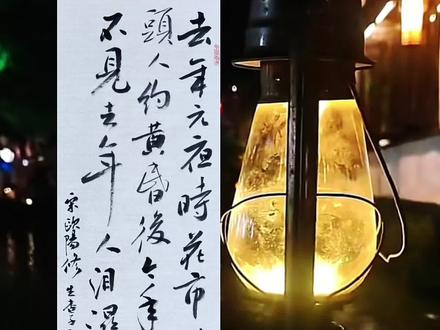 去年元夜時花市
頭人約黃昏後今年
不見去年人泪濕
宋歐陽修生查子